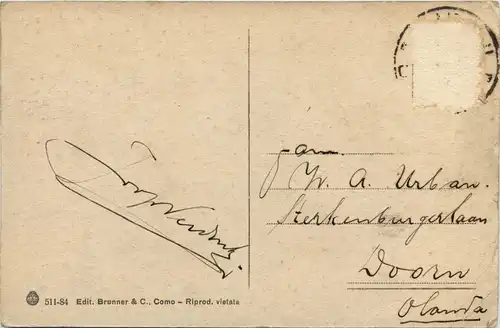 Fam.
W. A. Urban.
Sterkenburgerlaan
Doorn
Olanda
511-84 Edit. Brunner & C., Como – Riprod. vietata